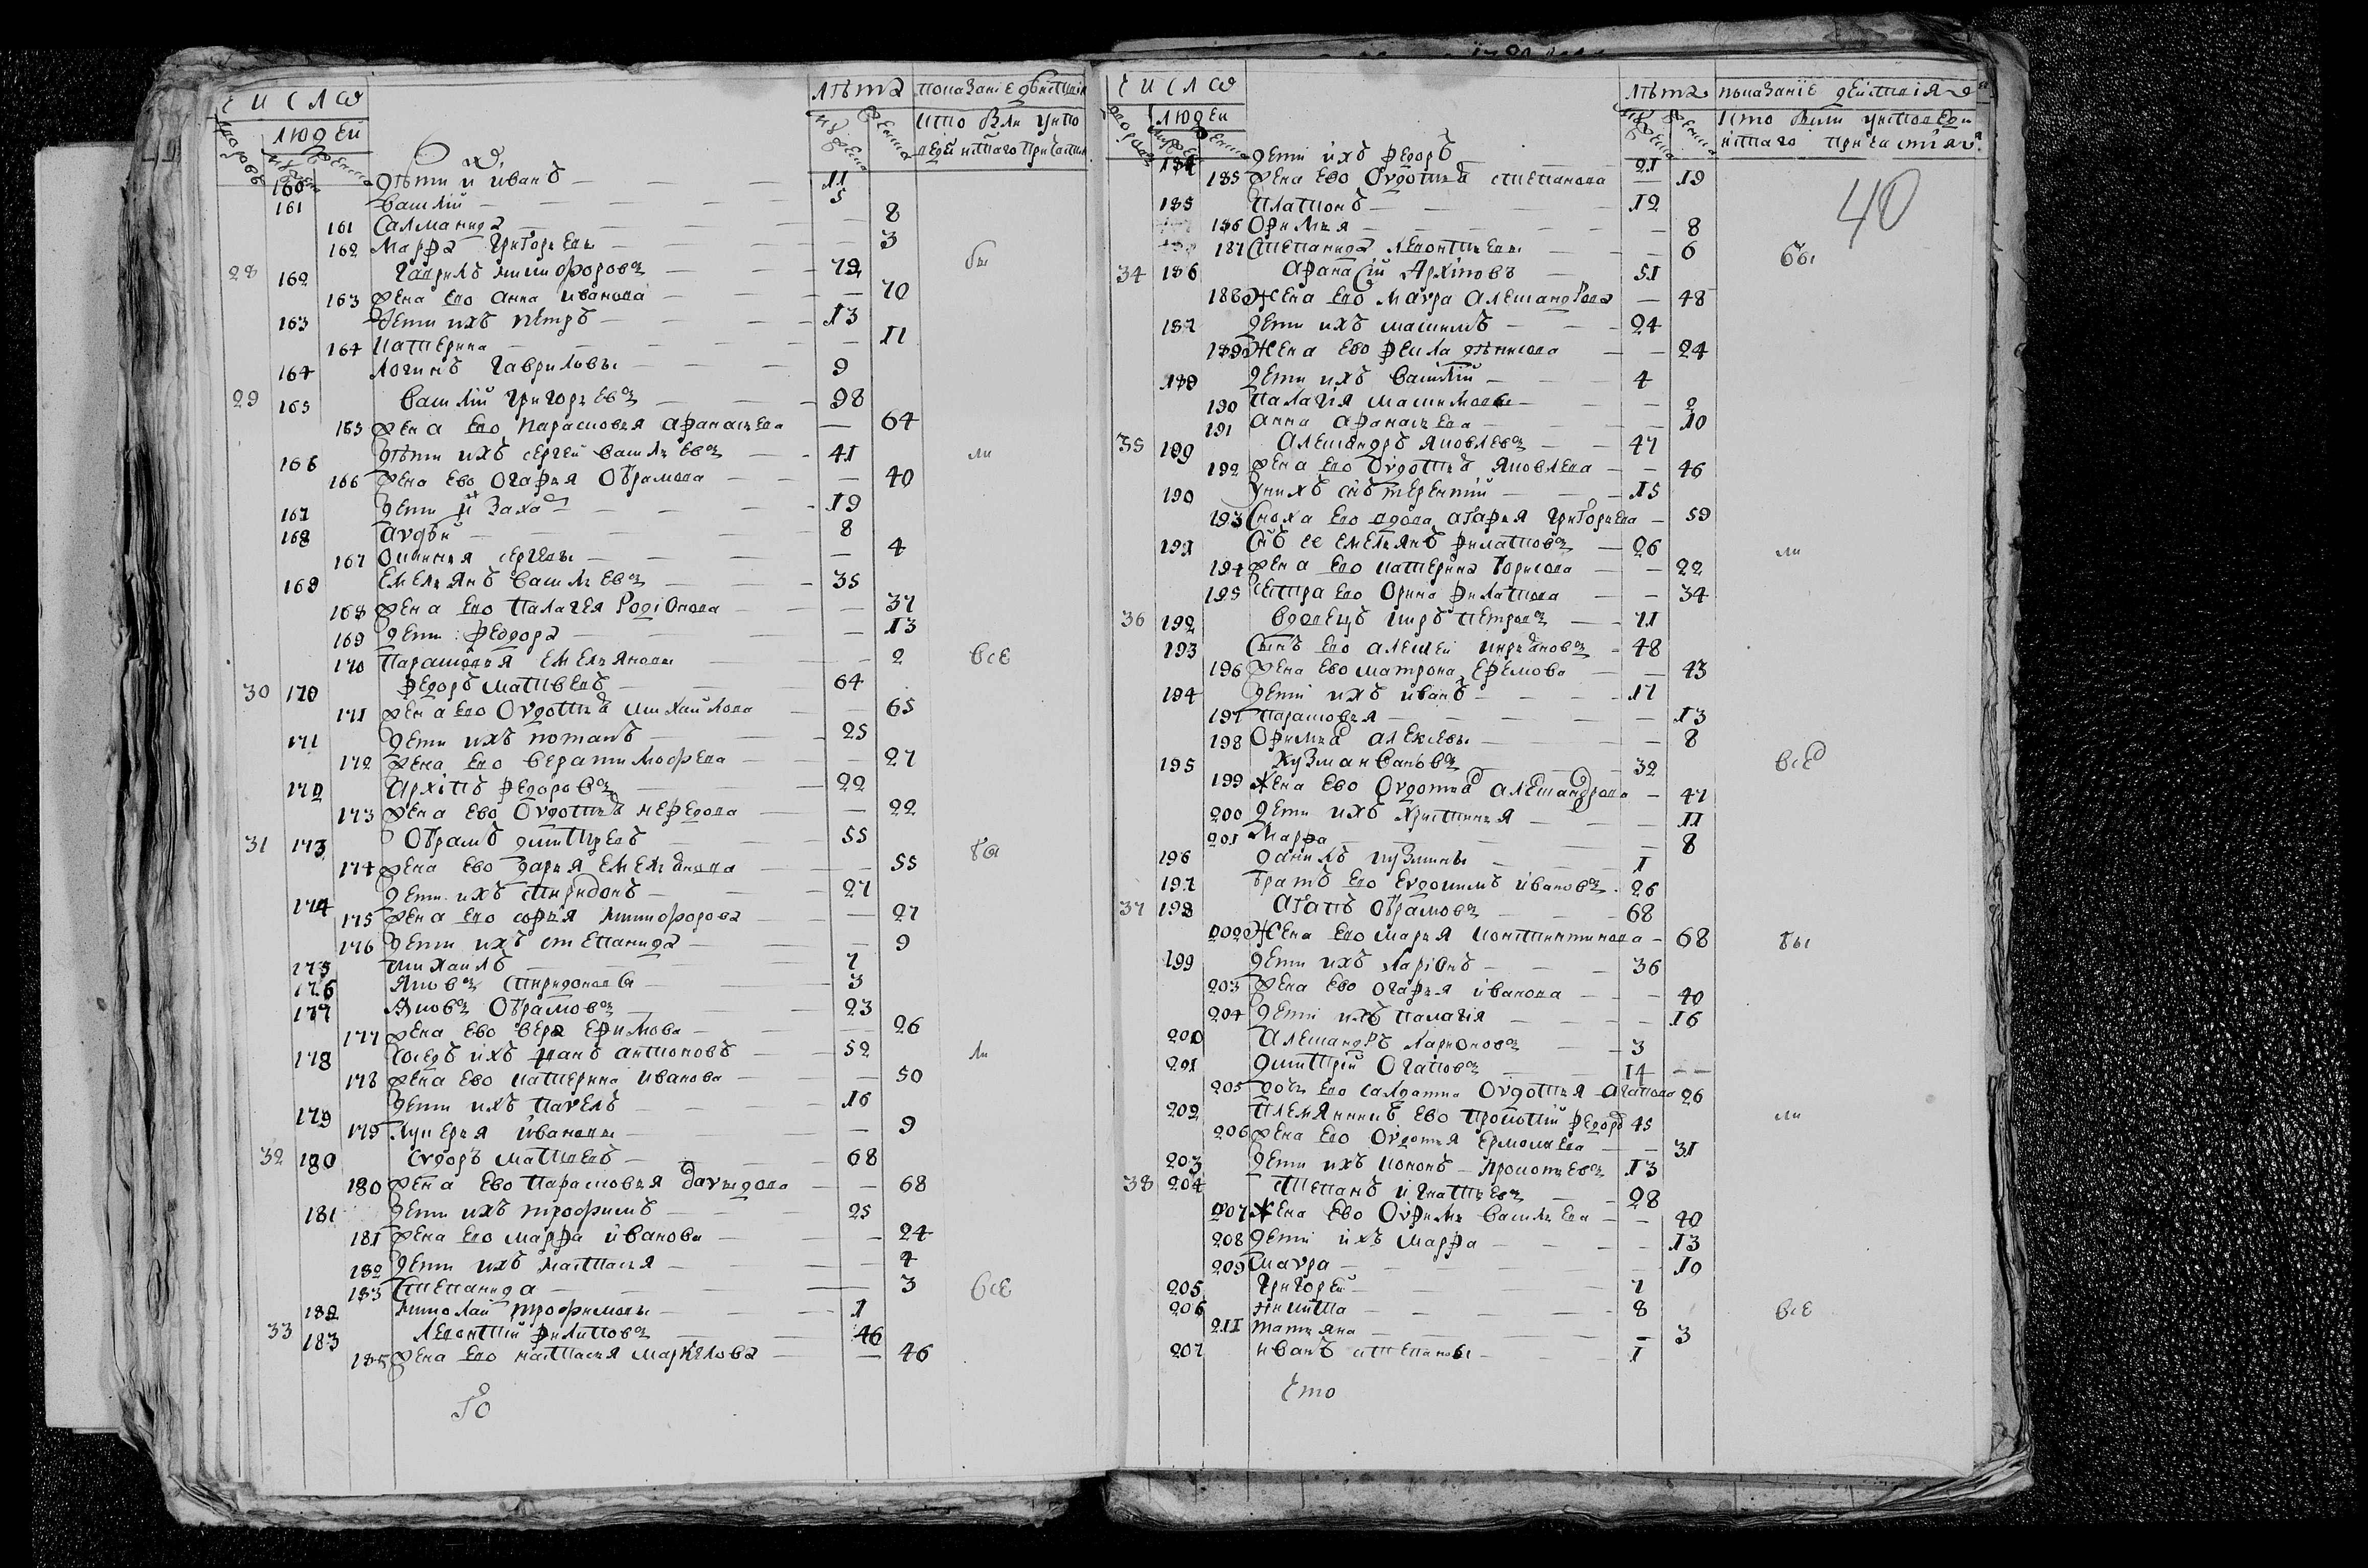 число
людей
лѣта
показанїе дѣиствїя
кто были у испо
160 дѣти и иванъ — 11
161 василїй — 5
161 саламанида — 8
162 марфа григорьевы — 3
бы
28 162 гаврилъ никифоровъ — 72
163 жена ево анна иванова — 70
163 дети ихъ петръ — 13
164 катерина — 11
164 логинъ гавриловы — 9
29 165 василїй григорьевъ — 98
165 жена ево парасковья афанасьева — 64
166 дѣти ихъ сергей васильевъ — 41
ли
166 жена ево огафья обрамова — 40
167 дети и заха — 19
168 авдѣй — 8
167 сергеевы — 4
169 емельянъ васильевъ — 35
168 жена ево палагея родїонова — 37
169 дети федора — 13
170 парасковья емельяновы — 2
все
30 170 федоръ матвеевъ — 64
171 жена ево овдотья михайлова — 65
171 дети ихъ потапъ — 25
172 жена ево вера тимофеева — 27
172 архїпъ федоровъ — 22
173 жена ево овдотья нефедова — 22
31 173 обрамъ дмитреевъ — 55
бы
174 жена ево дарья емельянова — 55
174 дети ихъ спиридонъ — 27
175 жена ево софья никифорова — 27
176 дети ихъ степанида — 9
175 михаилъ — 7
176 яковъ спиридоновы — 3
177 яковъ обрамовъ — 23
177 жена ево вера ефимова — 26
178 соседъ ихъ иванъ антоновъ — 52
ли
178 жена ево катерина иванова — 50
179 дети ихъ павелъ — 16
179 лукерья ивановы — 9
32 180 сидоръ матвеевъ — 68
180 жена ево парасковья давыдова — 68
181 дети ихъ трофимъ — 25
181 жена ево марфа иванова — 24
182 дети ихъ настасья — 4
183 степанида — 3
все
182 николай трофимовы — 1
33 183 леонтїй филиповъ — 46
жена ево настасья маркелова — 46
число
людей
лѣта
показанїе деиствїя
кто были у исповеди
40
184 дети ихъ федоръ — 21
185 жена ево овдотья степанова — 19
185 платонъ — 12
186 офимья — 8
187 степанида леонтьевы — 6
бы
34 186 афанасїй архїповъ — 51
188 жена ево мавра александрова — 48
187 дети ихъ максимъ — 24
189 жена ево фекла денисова — 24
188 дети ихъ василїй — 4
190 палагїя максимовы — 2
191 анна афанасьева — 10
35 199 александръ яковлевъ — 47
192 жена ево овдотья яковлева — 46
190 у нихъ снъ терентїй — 15
193 сноха ево вдова агафья григорьева — 59
191 снъ ее емельянъ филатовъ — 26
ли
194 жена ево катерина борисова — 22
195 сестра ево орина филатова — 34
36 192 вдовецъ киръ петровъ — 71
193 сынъ ево алексей кирьяновъ — 48
196 жена ево матрона ефремова — 43
194 дети ихъ иванъ — 17
197 парасковья — 13
198 офимья алексеевы — 8
195 кузма ивановъ — 32
все
199 жена ево овдотья александрова — 47
200 дети ихъ христинья — 11
201 марфа — 8
196 данилъ кузмины — 1
197 братъ ево евдокимъ ивановъ — 26
37 198 агапъ обрамовъ — 68
202 жена ево марья константинова — 68
бы
199 дети ихъ ларїонъ — 36
203 жена ево огафья иванова — 40
204 дети ихъ палагїя — 16
200 александръ ларионовъ — 3
201 дмитрїй огаповъ — 14
205 дочь ево салдатка овдотья агапова 26
202 племянникъ ево прокопїй федоръ 45
ли
206 жена ево овдотья ермолаева — 31
203 дети ихъ кононъ прокопьевъ 13
38 204 степанъ игнатьевъ — 28
207 жена ево офимья васильева — 40
208 дети ихъ марфа — 13
209 мавра — 10
205 григорей — 7
206 никита — 8
все
211 татьяна — 3
207 иванъ степановы — 1
что